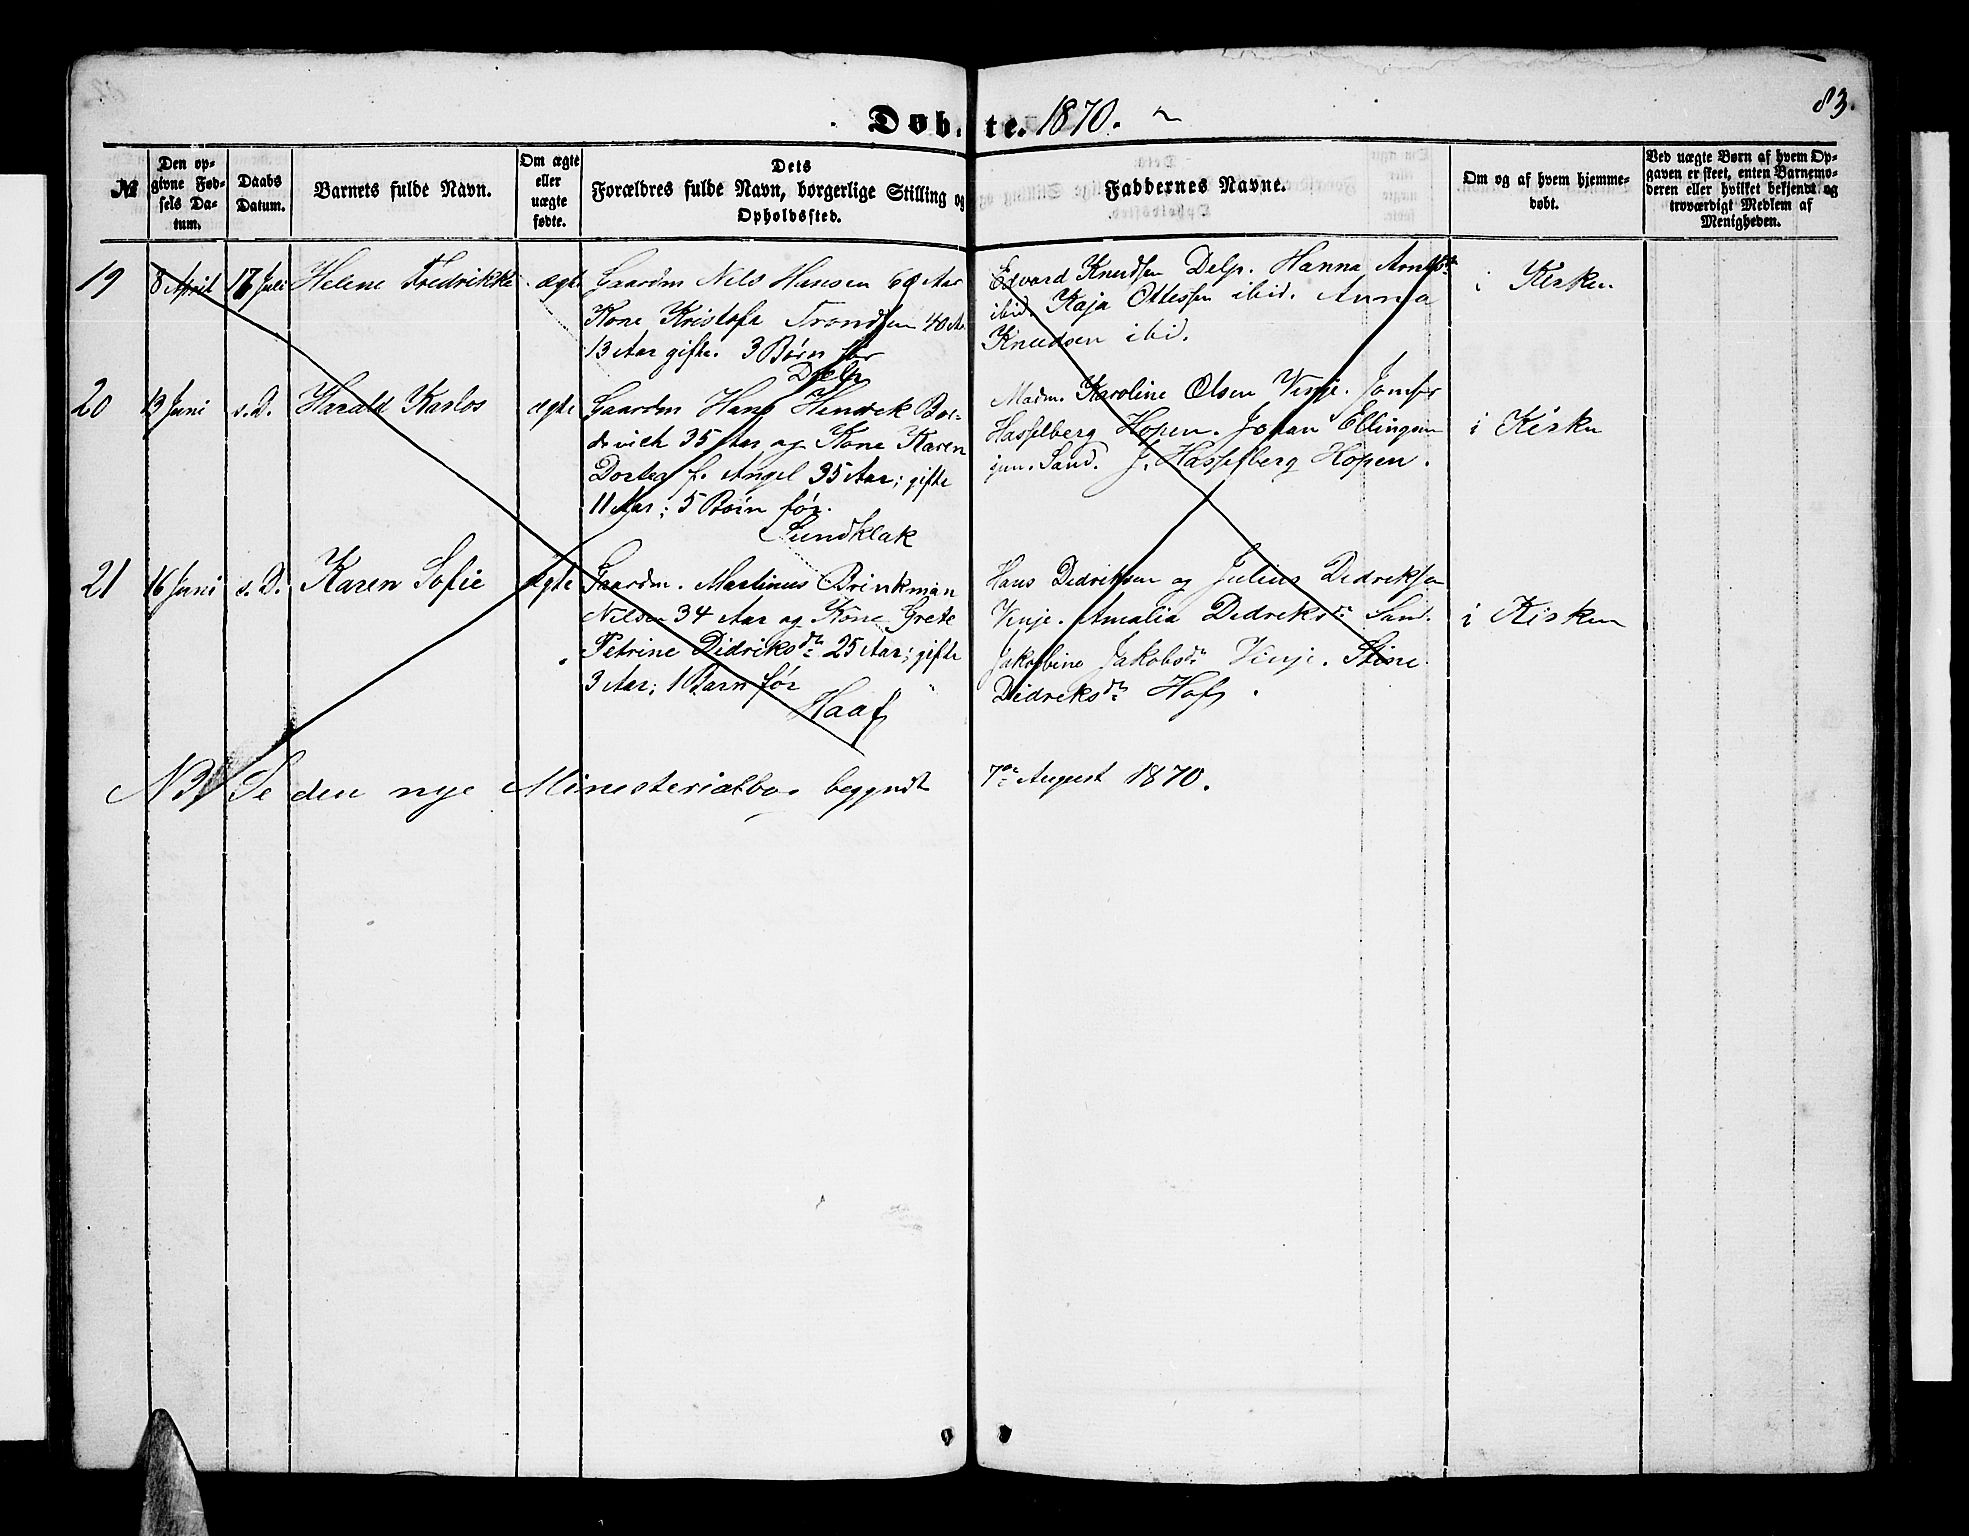 83.
Døbte. 1870.
№
Den opgivne Fødsels Datum.
Daabs Datum.
Barnets fulde Navn.
Om ægte eller uægte fødte.
Dets Forældres fulde Navn, borgerlige Stilling og Opholdssted.
Faddernes Navne.
Om og af hvem hjemmedøbt.
Ved uægte Børn af hvem Opgaven er skeet, enten Barnemoderen eller hvilket bekjendt og troværdigt Medlem af Menigheden.
19 8 April 17 Juli Helene Fredrikke ægte
Gaardm Nils Hansen 60 Aar
Kone Kristofa Trondsen 40 A.
13 Aar gifte. 3 Børn før
Delp
Edvard Knudsen Delp. Hanna
ibid. Kaja Ottessen ibid. Anna
Knudsen ibid.
i Kirken
20 13 Juni s.D. Harald Karlos ægte
Gaardm Hans Hendrek
35 Aar og Kone Karen
Dortea f. Angel 35 Aar; gifte
11 Aar; 5 Børn før.
Sundklak
Madm. Karoline Olsen Vinje. Jomfr
Hasselberg Hopen. Johan Ellingsen
jun. Sand. J. Hasselberg Hopen.
i Kirken
21 16 Juni s.D. Karen Sofie ægte
Gaardm. Martinus Brinkman
Nilsen 34 Aar og Kone Grete
Petrine Didriksdtr 25 Aar; gifte
3 Aar; 1 Barn før
Haaf
Hans Didriksen og Julius Didriksen
Vinje. Amalia Didreksdtr Sand.
Jakobbine Jakobsdtr Vinje. Stine
Didreksdtr Hof.
i Kirken
NB/ Se den nye Ministerialbog begyndt 7de August 1870.